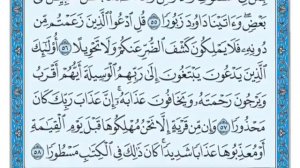 بَعْضٍ وَءَاتَيْنَا دَاوُۥدَ زَبُورًا ٥٥ قُلِ ٱدْعُوا۟ ٱلَّذِينَ زَعَمْتُم مِّن
دُونِهِۦ فَلَا يَمْلِكُونَ كَشْفَ ٱلضُّرِّ عَنكُمْ وَلَا تَحْوِيلًا ٥٦ أُو۟لَٰٓئِكَ
ٱلَّذِينَ يَدْعُونَ يَبْتَغُونَ إِلَىٰ رَبِّهِمُ ٱلْوَسِيلَةَ أَيُّهُمْ أَقْرَبُ
وَيَرْجُونَ رَحْمَتَهُۥ وَيَخَافُونَ عَذَابَهُۥٓ ۚ إِنَّ عَذَابَ رَبِّكَ كَانَ
مَحْذُورًا ٥٧ وَإِن مِّن قَرْيَةٍ إِلَّا نَحْنُ مُهْلِكُوهَا قَبْلَ يَوْمِ ٱلْقِيَٰمَةِ
أَوْ مُعَذِّبُوهَا عَذَابًا شَدِيدًا ۚ كَانَ ذَٰلِكَ فِى ٱلْكِتَٰبِ مَسْطُورًا ٥٨